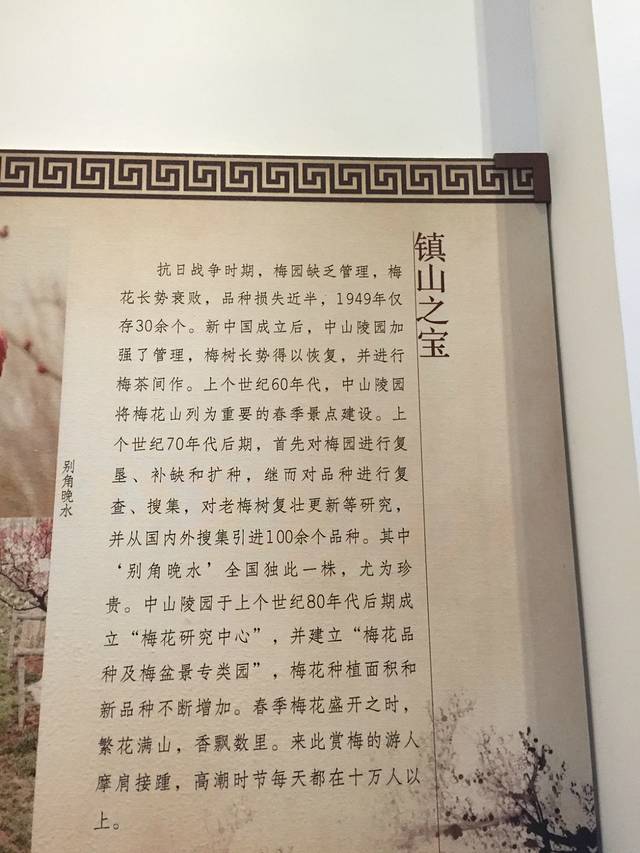 镇山之宝
抗日战争时期，梅园缺乏管理，梅
花长势衰败，品种损失近半，1949年仅
存30余个。新中国成立后，中山陵园加
强了管理，梅树长势得以恢复，并进行
梅茶间作。上个世纪60年代，中山陵园
将梅花山列为重要的春季景点建设。上
个世纪70年代后期，首先对梅园进行复
垦、补缺和扩种，继而对品种进行复
查、搜集，对老梅树复壮更新等研究，
并从国内外搜集引进100余个品种。其中
‘别角晚水’全国独此一株，尤为珍
贵。中山陵园于上个世纪80年代后期成
立“梅花研究中心”，并建立“梅花品
种及梅盆景专类园”，梅花种植面积和
新品种不断增加。春季梅花盛开之时，
繁花满山，香飘数里。来此赏梅的游人
摩肩接踵，高潮时节每天都在十万人以
上。
别角晚水